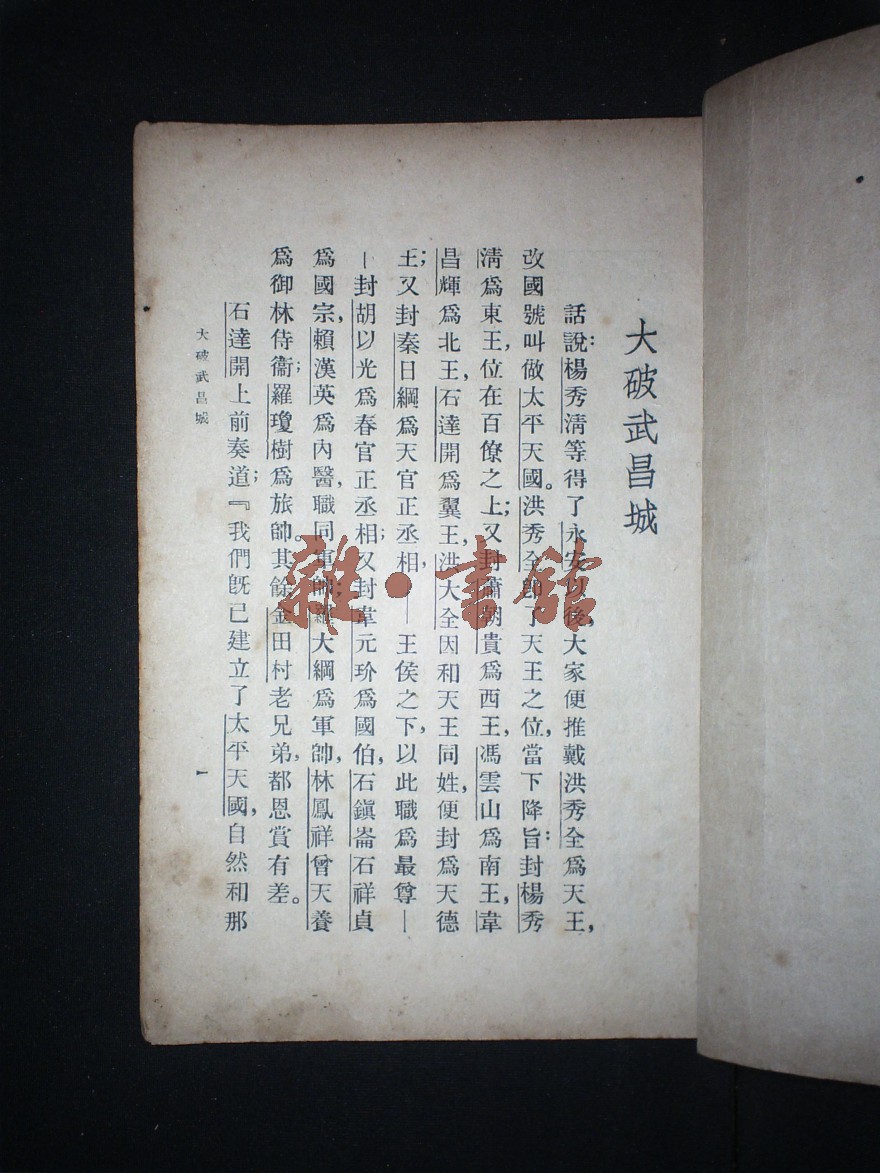 大破武昌城
話說：楊秀淸等得了永安以後，大家便推戴洪秀全爲天王，
改國號叫做太平天國。洪秀全卽了天王之位，當下降旨：封楊秀
淸爲東王，位在百僚之上；又封蕭朝貴爲西王，馮雲山爲南王，韋
昌輝爲北王，石達開爲翼王，洪大全因和天王同姓，便封爲天德
王；又封秦日綱爲天官正丞相，——王侯之下，以此職爲最尊—
—封胡以光爲春官正丞相；又封韋元玠爲國伯，石鎭崙石祥貞
爲國宗，賴漢英爲內醫，職同軍師；羅大綱爲軍帥，林鳳祥曾天養
爲御林侍衞；羅瓊樹爲旅帥。其餘金田村老兄弟，都恩賞有差。
石達開上前奏道；『我們旣已建立了太平天國，自然和那
大破武昌城
一
雜·書館